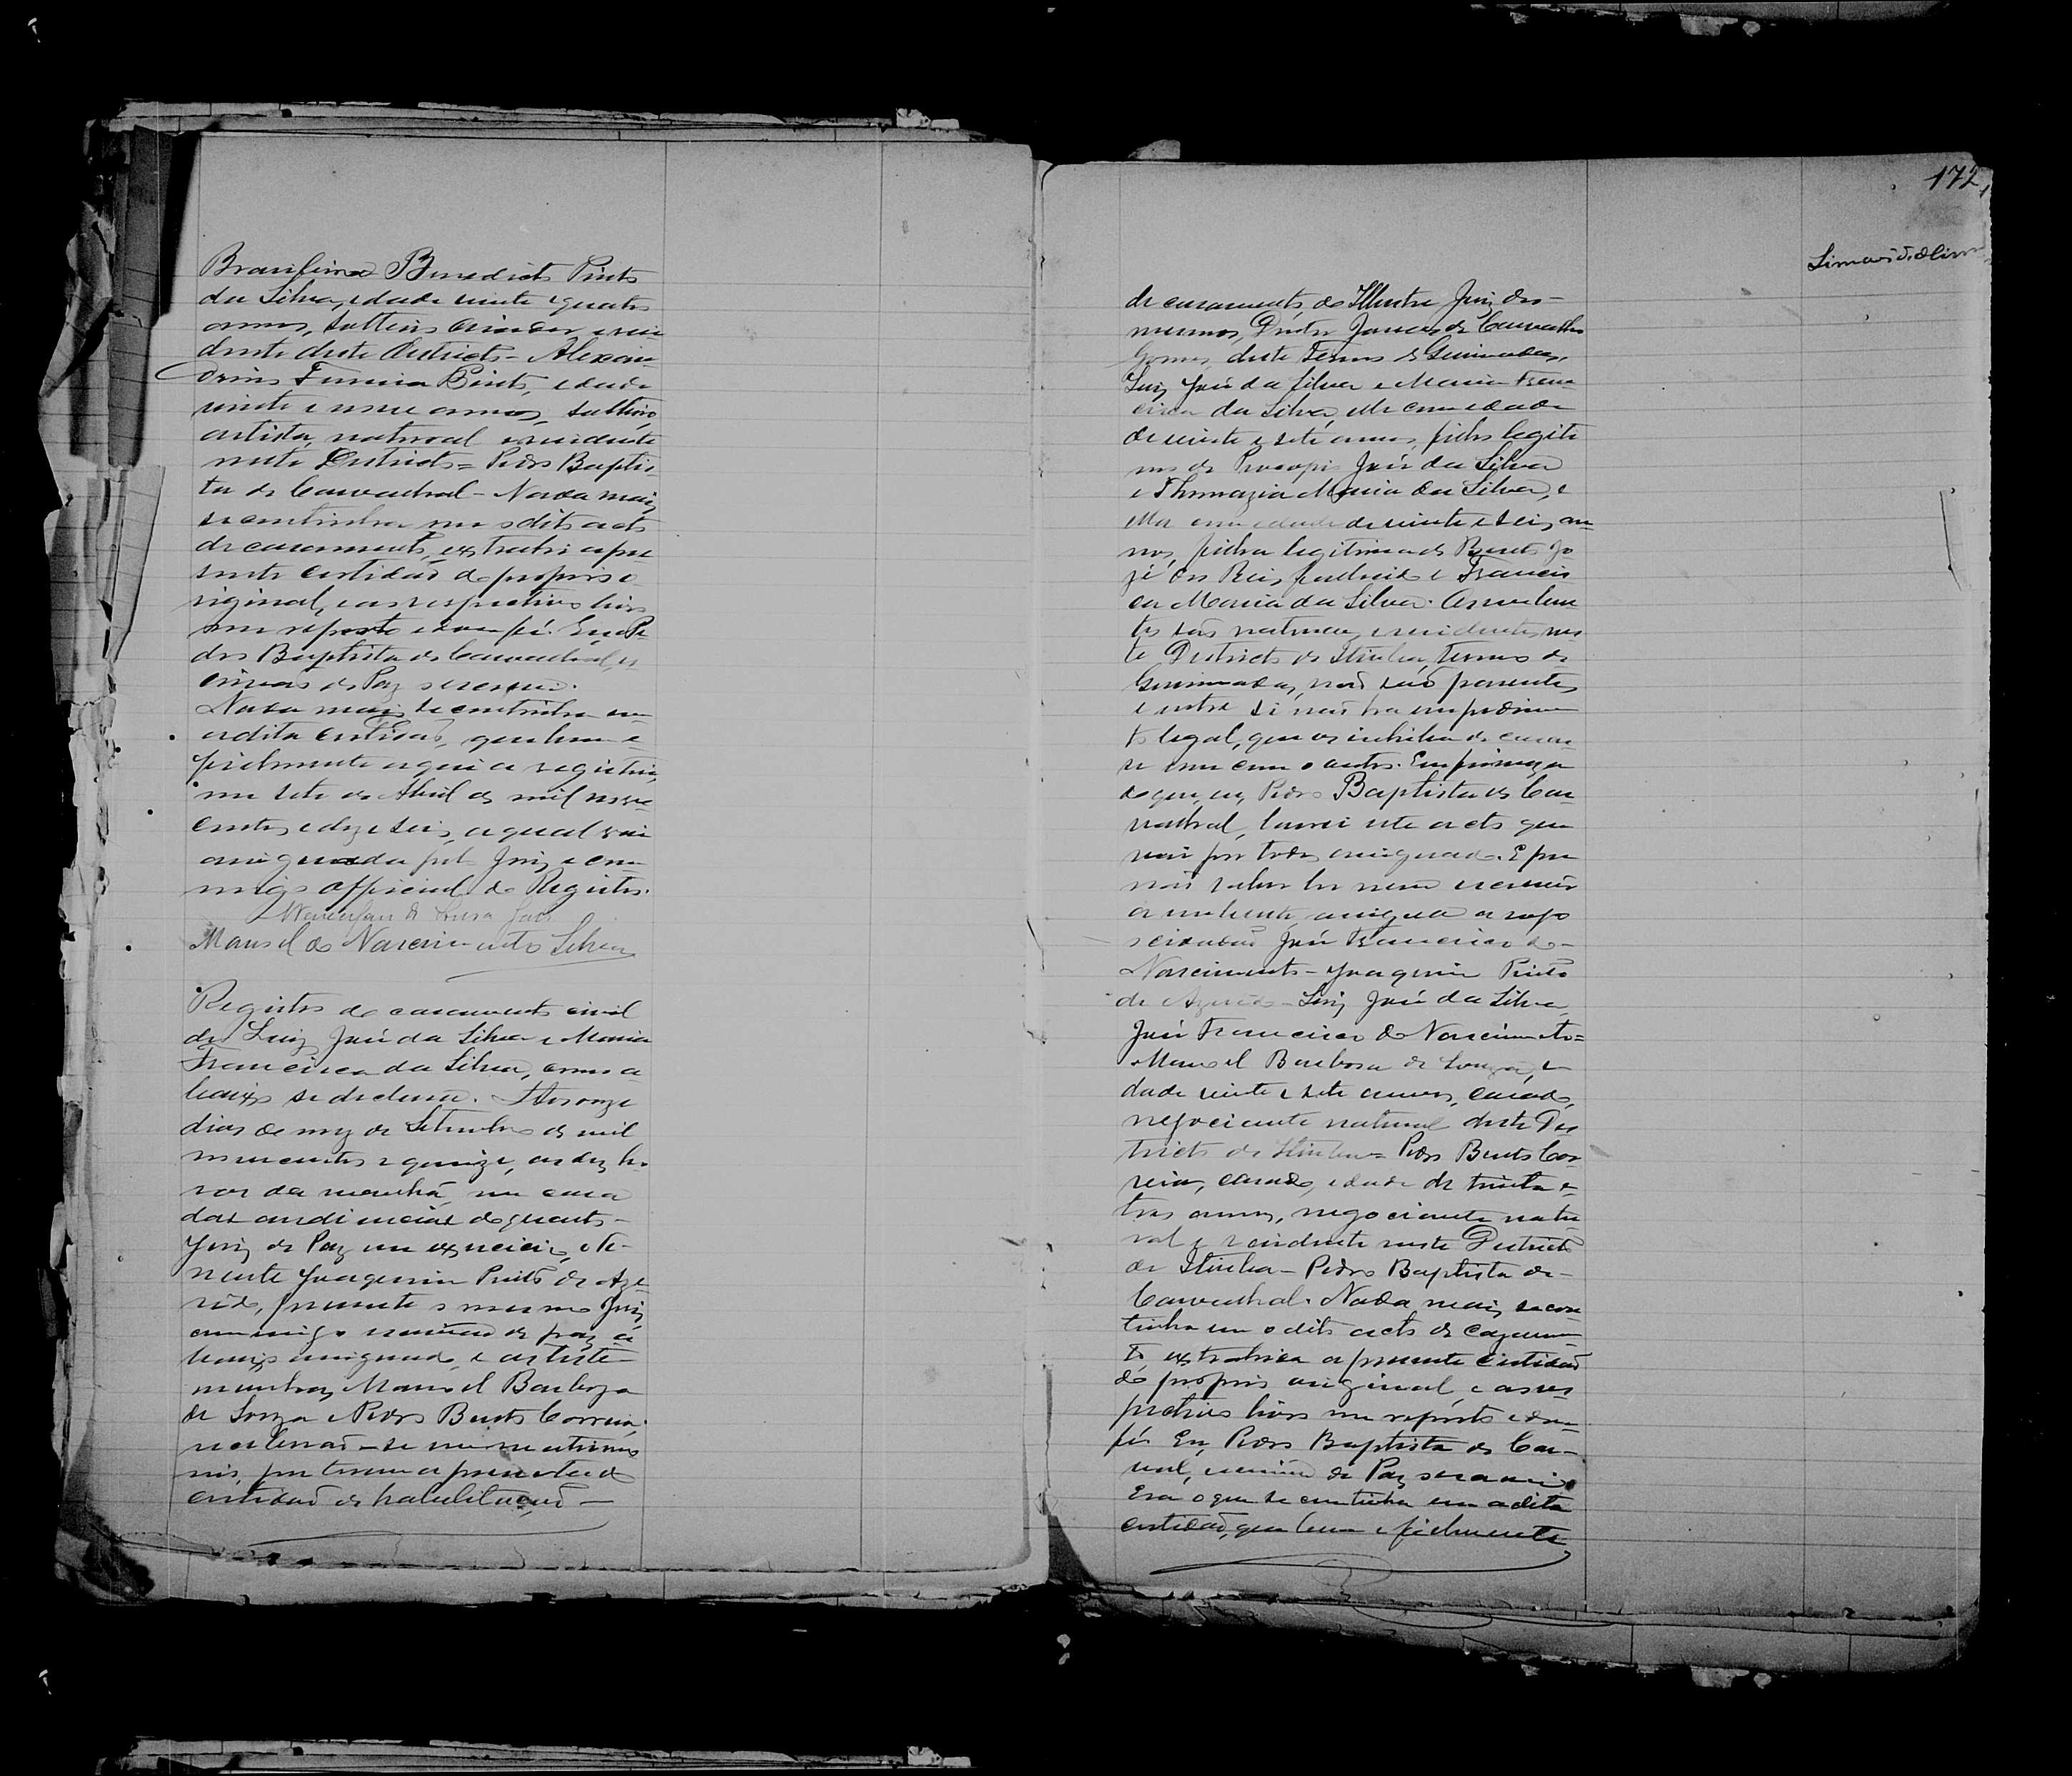 Brasilino Benedicto Pinto
da Silva, edade vinte e quatro
annos, solteiro creador e resi
dente deste Districto - Alexan
drino Ferreira Pinto, edade
vinte e nove annos, solteiro,
artista, natural e residente
neste Districto = Pedro Baptis
ta de Carvalhal - Nada mais
se continha no dito acto
de casamento, extrahi a pre
sente certidaõ do proprio o
riginal, e aos respectivos livro
me reporto e dou fé. Eu, Pe
dro Baptista de Carvalhal, es
crivaõ de Paz escrevi.
Nada mais se continha em
a dita certidaõ, que bem e
fielmente aqui a registrei,
em sete de Abril de mil nove
centos e dezeseis, a qual vai
assignada pelo Juiz e com
migo official do Registro.
de Souza
Manoel do Nascimento Silva
Registro do casamento civil
de Luiz José da Silva e Maria
Francisca da Silva, como a
baixo se declara. Aos onze
dias do mez de Setembro de mil
novecentos e quinze, as dez ho
ras da manhã, na casa
das audiencias do quarto
Juiz de Paz em exercicio, o te
nente Joaquim Pinto de Aze
vêdo, presente o mesmo Juiz
commigo escrivaõ de paz a
baixo assignado, e as teste
munhas, Manoel Barboza
de Souza e Pedro Bento Correia,
receberaõ-se em matrimo
nio, por terem apresentado
certidaõ de habilitaçaõ
172
de casamento, do Illustre Juiz dos
mesmos, Doutor de Carvalho
Gomes, deste Termo de Queimadas,
Luiz José da Silva e Maria Fran
cisca da Silva, elle com edade
de vinte e sete annos, filho legiti
mo de Procopio José da Silva
e Thomazia Maria da Silva, e
ella com edade de vinte e seis an
nos, filha legitima de Bento Jo
zé dos Reis, fallecido e Francis
ca Maria da Silva. Os nubem
tes saõ naturaes e residentes nes
te Districto de Itiuba, termo de
Queimadas, naõ saõ parentes
e entre si naõ ha impedimen
to legal, que os inhiba de casar
se um com o outro. Em firmeza
do que, eu, Pedro Baptista de Car
valhal, lavrei este acto que
vai por todos assignado. E por
naõ saber ler nem escrever
a nubente, assigna a rogo
o cidadaõ José Francisco do
Nascimento - Joaquim Pinto
de Azevêdo - Luiz José da Silva
José Francisco do Nascimento =
Manoel Barbosa de Souza, e
dade vinte e sete annos, casado,
negociante natural deste Dis
tricto de Itiuba = Pedro Bento Cor
reia, casado, edade de trinta e
tres annos, negociante natu
ral e residente neste Districto
de Itiuba - Pedro Baptista de
Carvalhal. Nada mais se con
tinha em o dito acto de casamen
to, extrahida a presente certidaõ
do proprio original, e aos res
pectivos livros me reporto e dou
fé. Eu, Pedro Baptista de Car
val, escrivaõ de Paz escrevi
Era o que se continha em a dita
certidaõ, que bem e fielmente